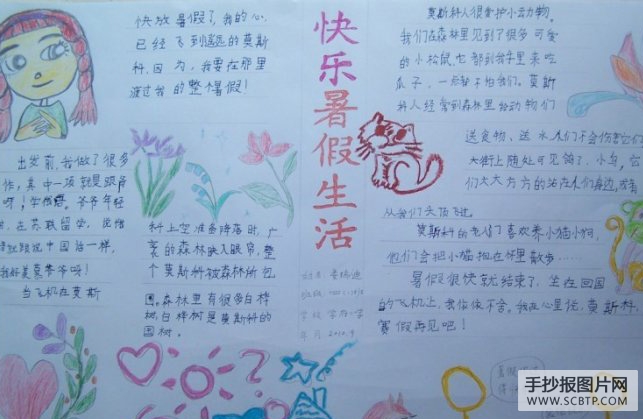 快放暑假了,我的心
已经飞到遥远的莫斯
科,因为,我要在那里
渡过我的整个暑假!
出发前,我做了很多
作,其中一项就是跟爷
呀!学俄语。爷爷年轻
,在苏联留学,说俄
跟说中国话一样,
我好羡慕爷爷啊!
当飞机在莫斯
科上空准备降落时,广
袤的森林映入眼帘,整
个莫斯科被森林所包
围。森林里有很多白桦
树,白桦树是莫斯科的
国树。
快乐暑假生活
姓名
班级
学校
年月 2010.9
莫斯科人很爱护小动物。
我们在森林里见到了很多可爱
的小松鼠,它都到我手里来吃
瓜子,一点都不怕我们。莫斯
科人经常到森林里给动物们
送食物、送水,人们不会伤害它们
大街上随处可见鸽子、小鸟,它
们大大方方的站在人们身边,或者
从我们头顶飞过。
莫斯科的老人们喜欢养小猫小狗,
他们会把小猫抱在怀里散步……
暑假很快就结束了,坐在回国
的飞机上,我依依不舍。我在心里说,莫斯科,
寒假再见吧!
手抄报图片网
www.SCBTP.com